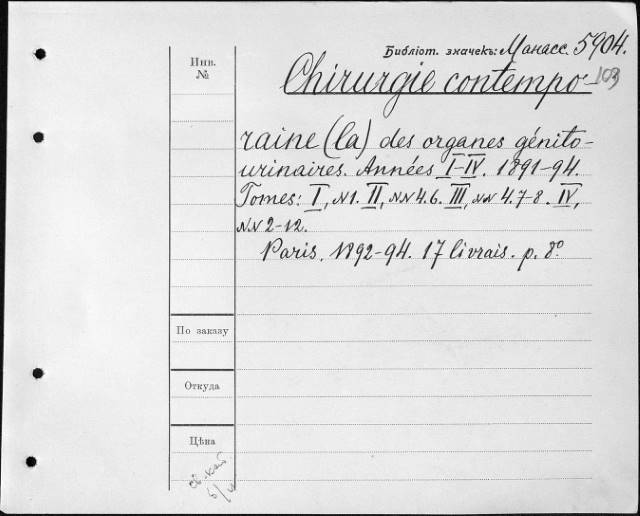 Библіот. значекъ: Манасс. 5904.
103
Инв.
№
Chirurgie contempo-
raine (la) des organes génito-
urinaires. Années I-IV. 1891-94.
Tomes: I, N1. II, NN 4.6. III, NN 4.7-8. IV,
NN 2-12.
Paris. 1892-94. 17 livrais. p. 8°
По заказу
Откуда
Цѣна